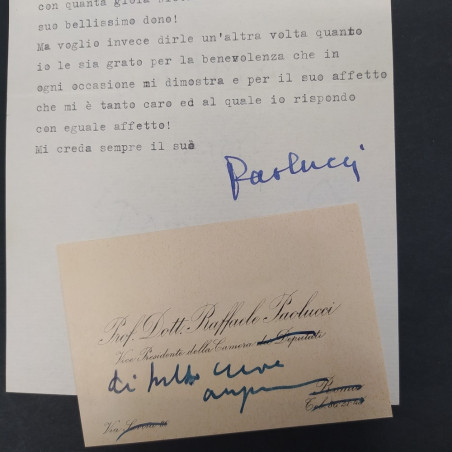 con quanta gioia
suo bellissimo dono!
Ma voglio invece dirle un'altra volta quanto
io le sia grato per la benevolenza che in
ogni occasione mi dimostra e per il suo affetto
che mi è tanto caro ed al quale io rispondo
con eguale affetto!
Mi creda sempre il suo
Paolucci
Prof. Dott. Raffaele Paolucci
Vice Presidente della Camera dei Deputati
di tutto cuore
Roma
Via